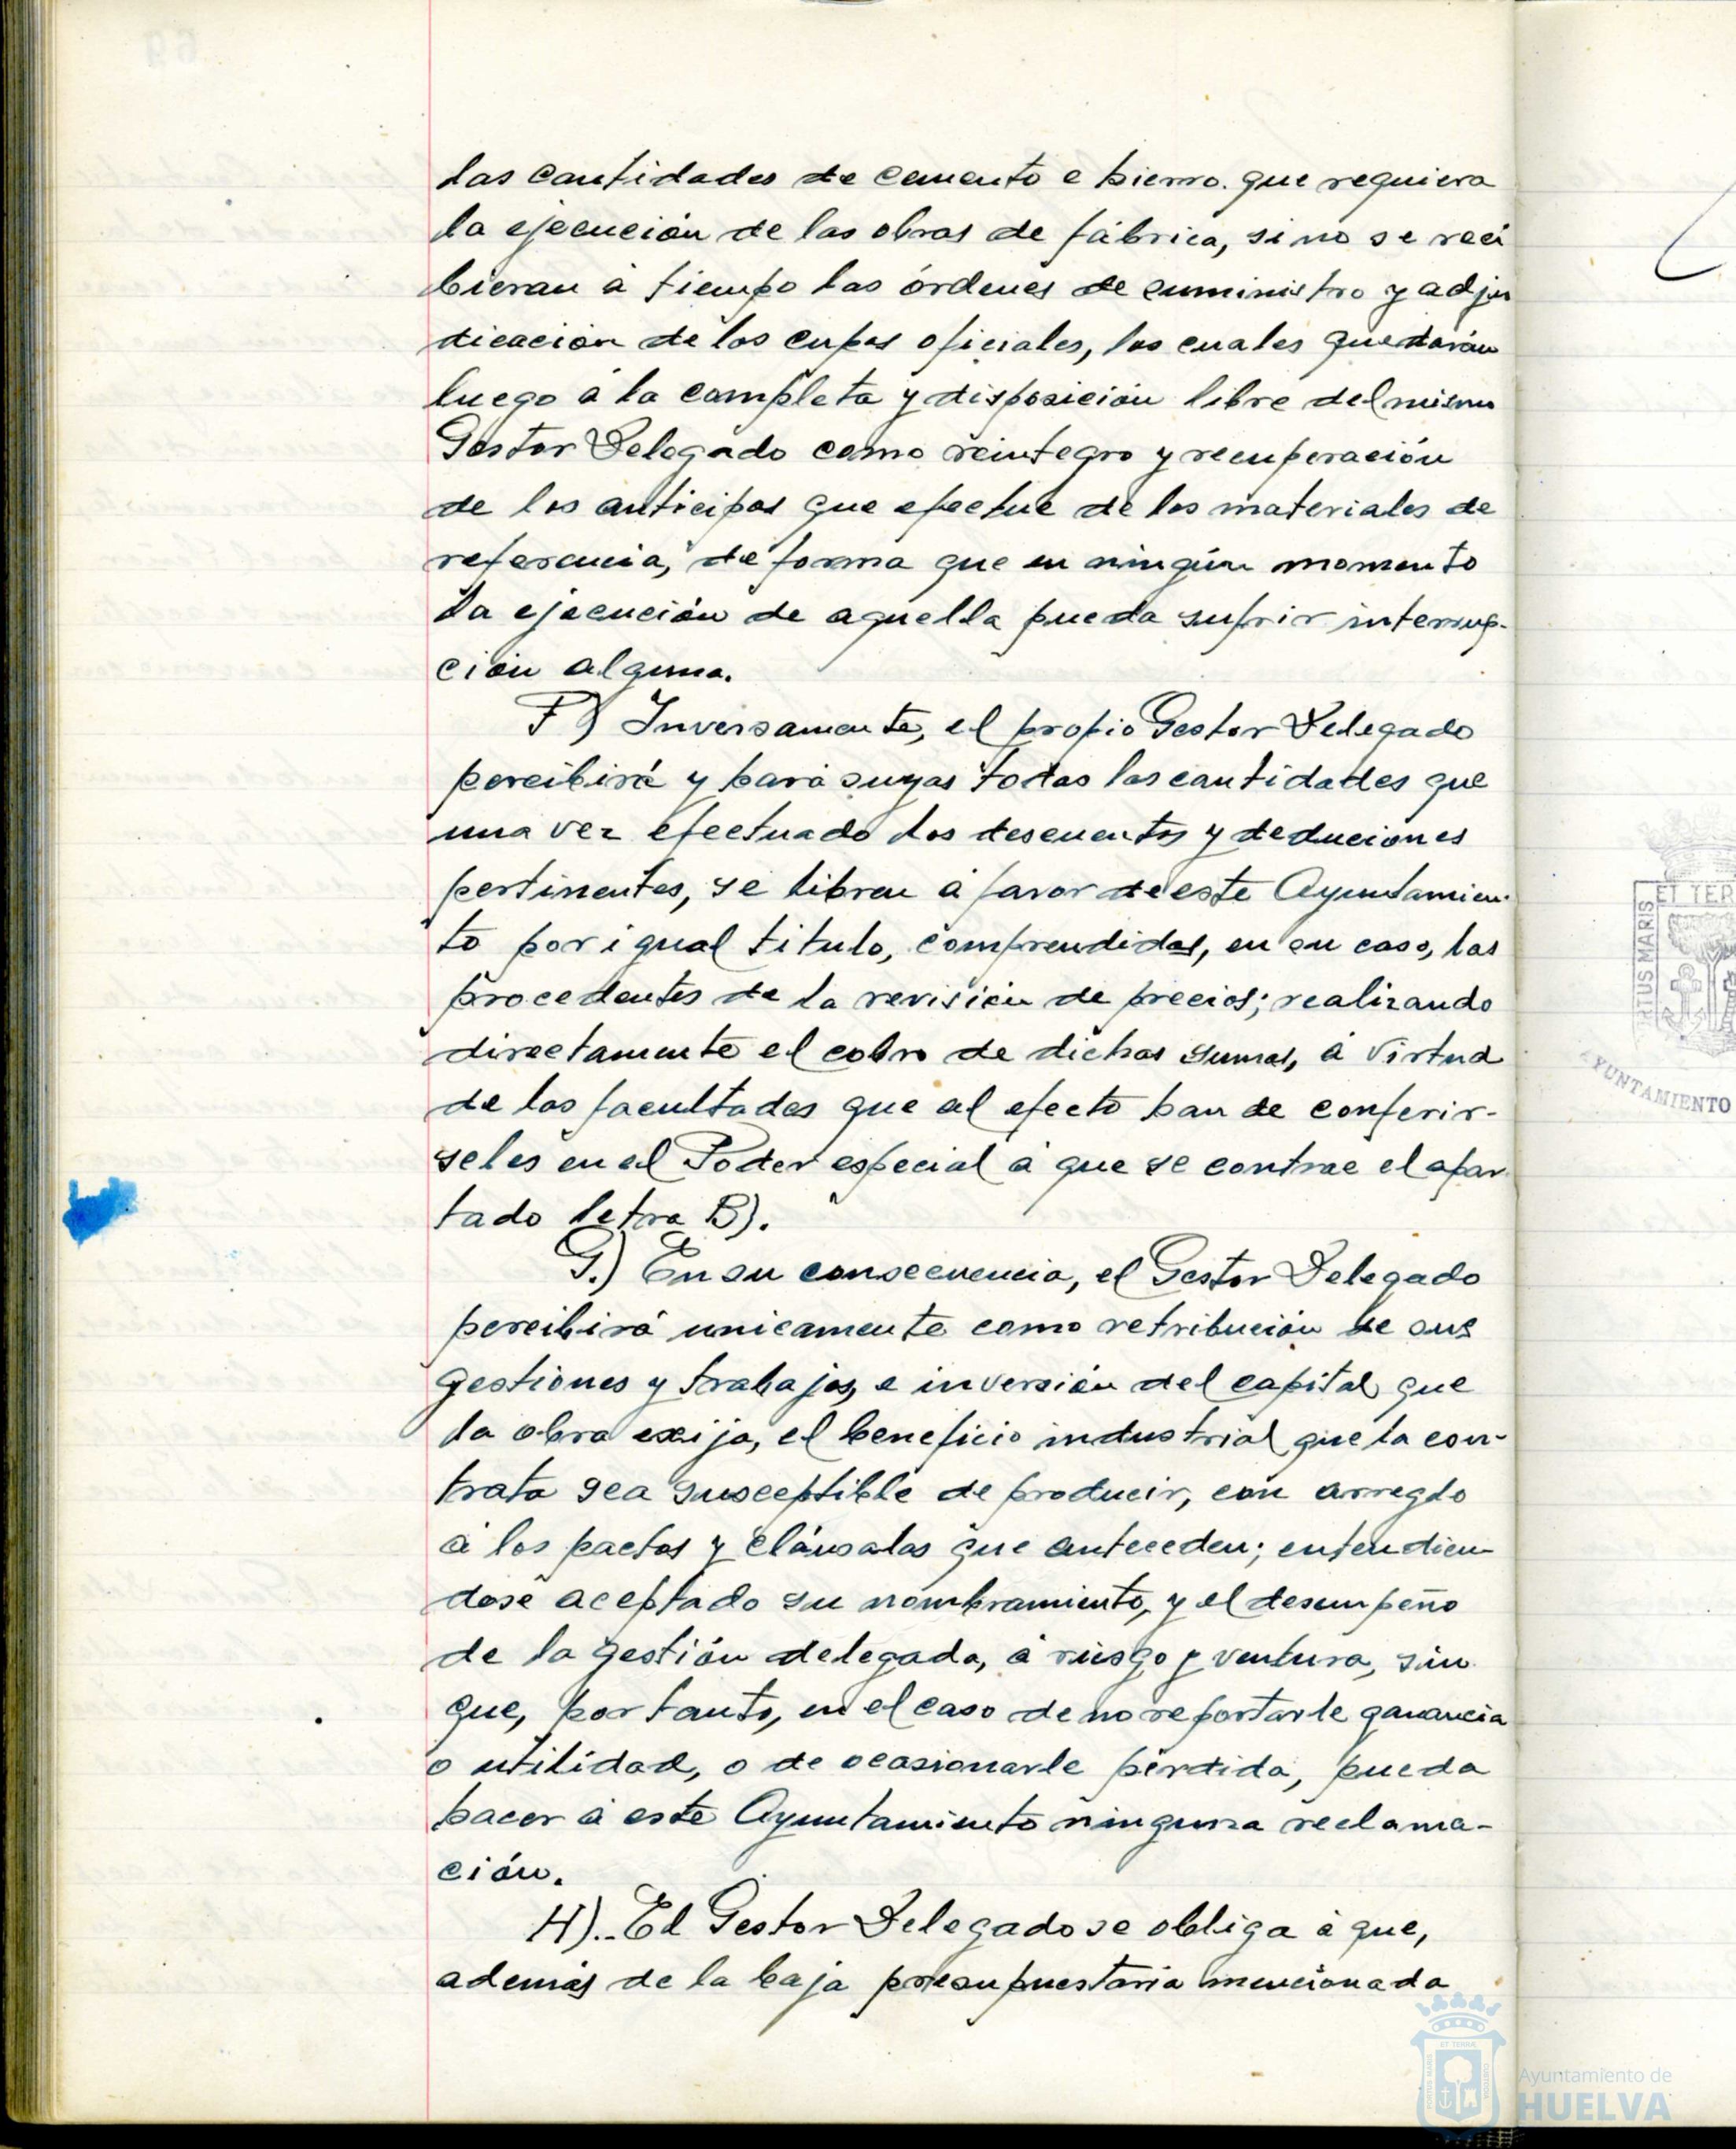 las cantidades de cemento e hierro. que requiera
la ejecución de las obras de fábrica, si no se reci
bieran á tiempo las órdenes de suministro y adju
dicación de los cupos oficiales, los cuales quedarán
luego á la completa y disposición libre del mismo
Gestor Delegado como reintegro y recuperación
de los anticipos que efectue de los materiales de
referencia, de forma que en ningún momento
la ejecución de aquella pueda sufrir interrup-
ción alguna.
F) Inversamente, el propio Gestor Delegado
percibirá y hará suyas todas las cantidades que
una vez efectuado los descuentos y deduciones
pertinentes, se libren á favor de este Ayuntamien-
to por igual titulo, comprendidas, en su caso, las
procedentes de la revisión de precios; realizando
directamente el cobro de dichas sumas, á virtud
de las facultades que al efecto han de conferir-
seles en el Poder especial á que se contrae el apar
tado letra B).
G.) En su consecuencia, el Gestor Delegado
percibirá unicamente como retribución de sus
gestiones y trabajos, e inversión del capital que
la obra exija, el beneficio industrial que la con-
trata sea susceptible de producir, con arreglo
á los pactos y cláusalas que anteceden; entendien-
dose aceptado su nombramiento, y el desempeño
de la gestión delegada, á riesgo y ventura, sin
que, por tanto, en el caso de no reportarle ganancia
o utilidad, o de ocasionarle pérdida, pueda
hacer á este Ayuntamiento ninguna reclama-
ción.
H).- El Gestor Delegado se obliga á que,
además de la baja presupuestaria mencionada
ET TER
RTUS MARIS
AYUNTAMIENTO
Ayuntamiento de
HUELVA